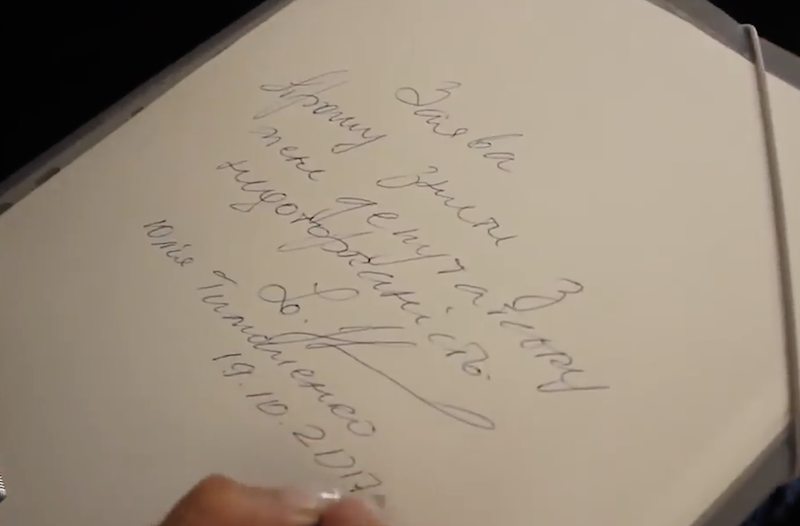 Заява
Прошу зняти з
мене депутатську
недоторканість.
Юлія Тимошенко
19.10.2017